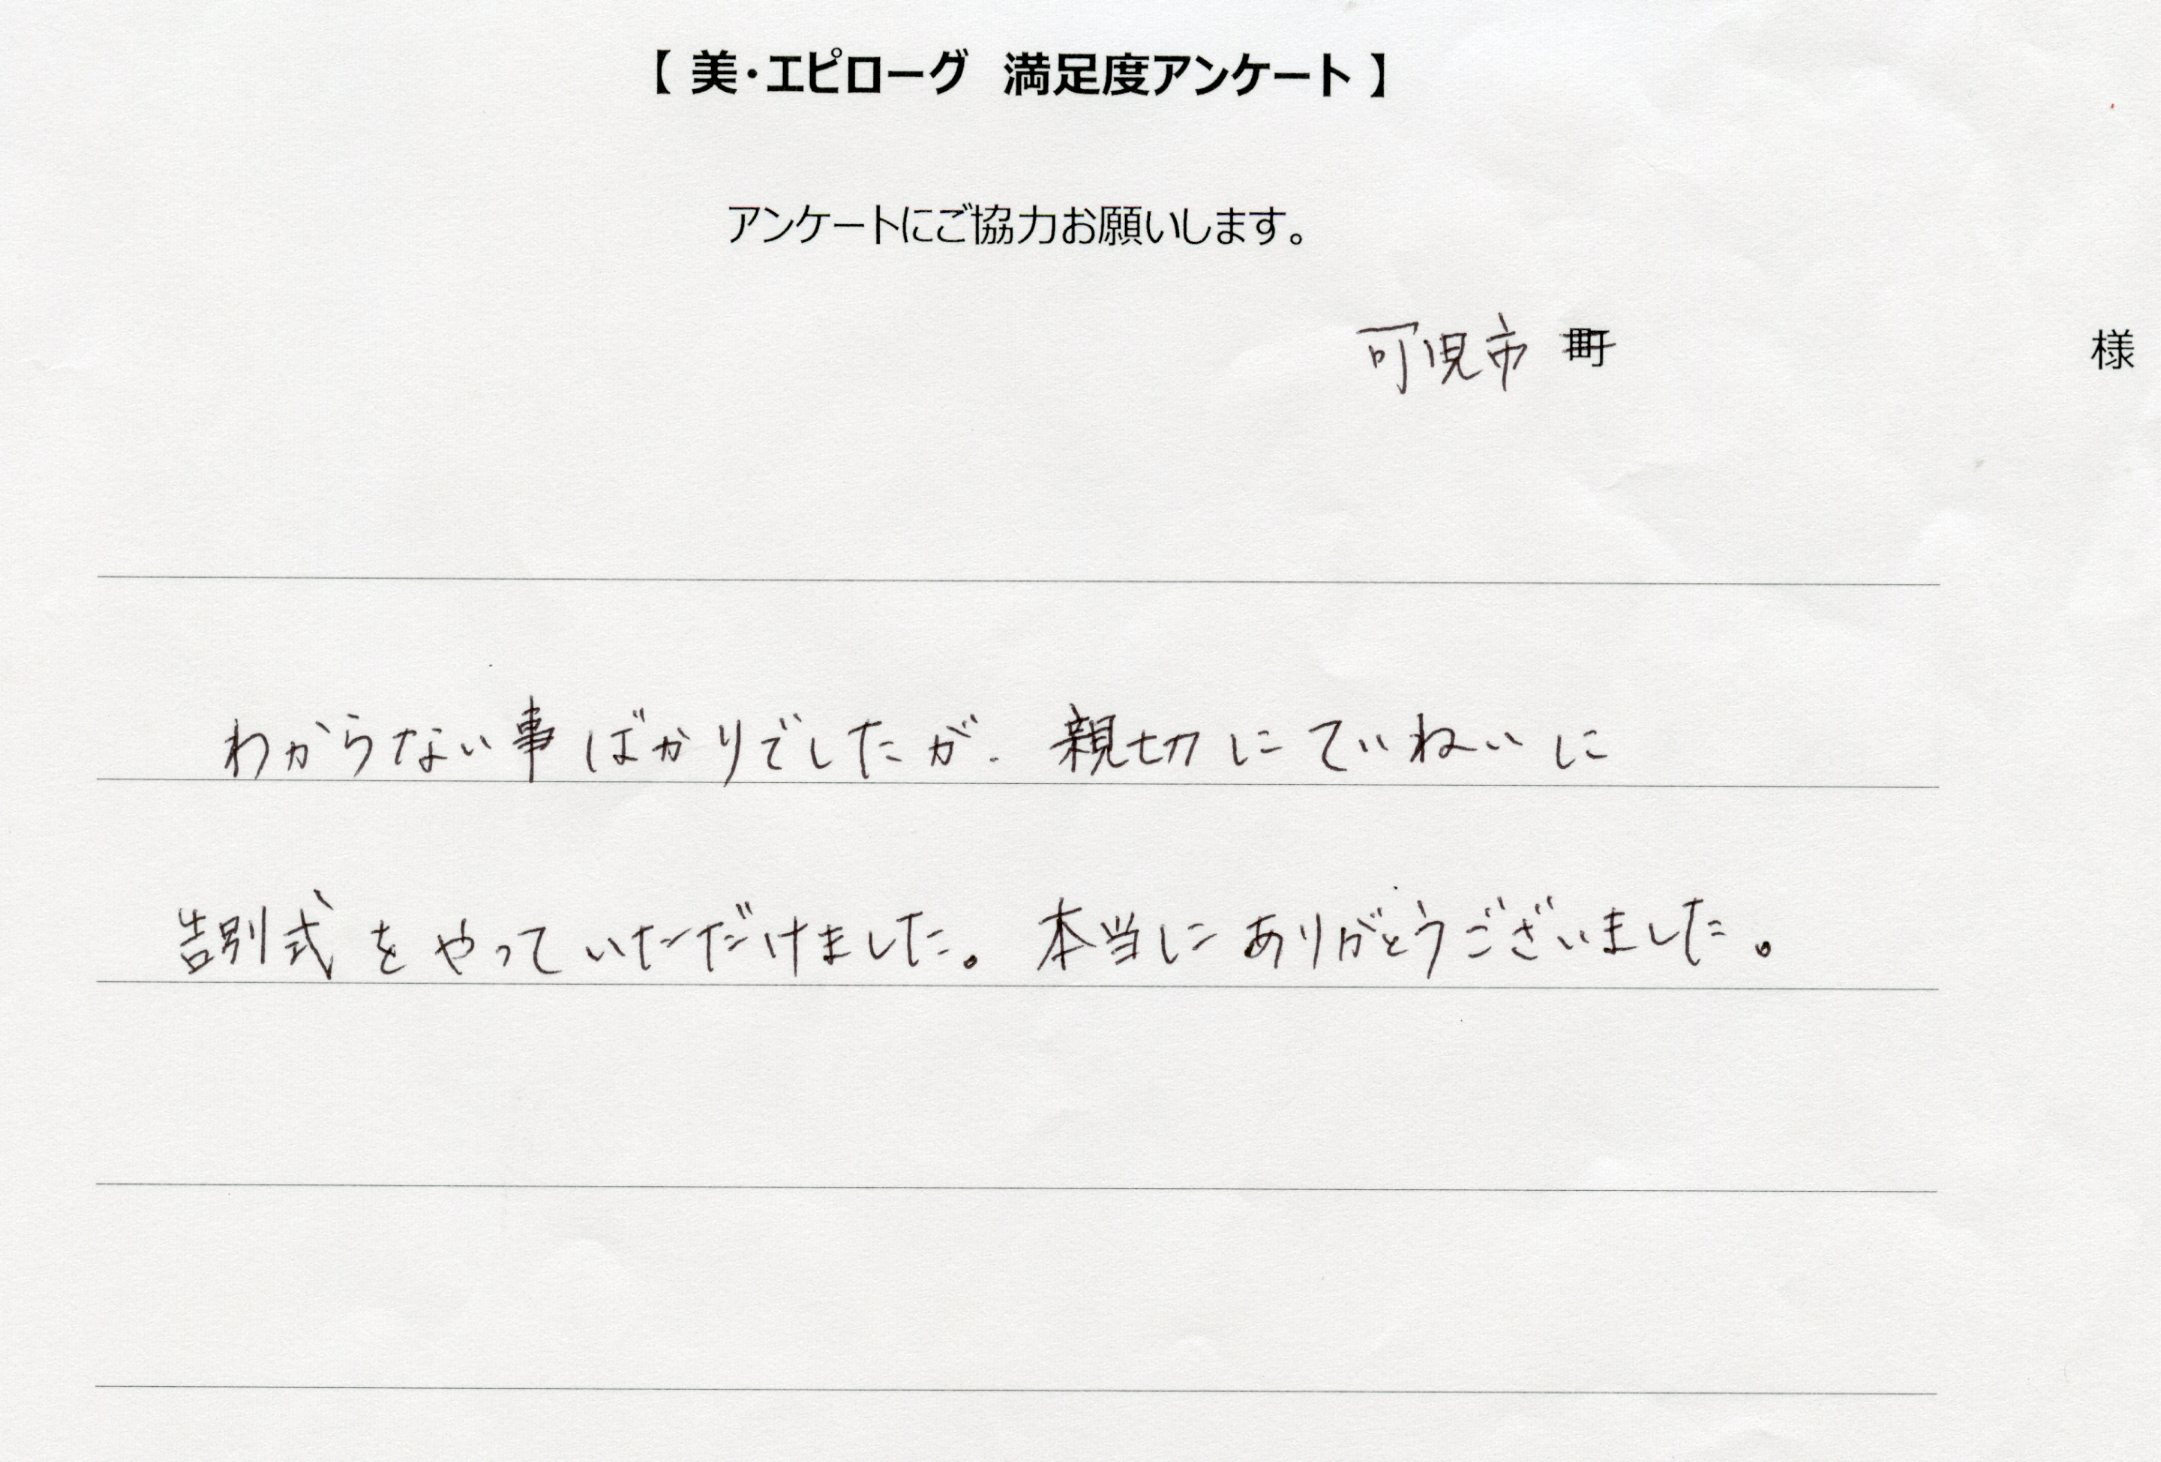 【 美・エピローグ 満足度アンケート 】
アンケートにご協力お願いします。
可児市 町 様
わからない事ばかりでしたが、親切にていねいに
告別式をやっていただけました。本当にありがとうございました。